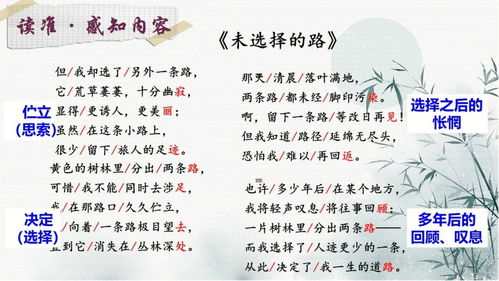 读准·感知内容
《未选择的路》
但/我却选了/另外一条路，
它/荒草萋萋，十分幽寂，
显得/更诱人，更美丽；
虽然/在这条小路上，
很少/留下/旅人的足迹。
黄色的树林里/分出/两条路，
可惜/我不能/同时去涉足，
我/在那路口/久久伫立，
/向着/一条路极目望去，
直到它/消失在/丛林深处。
伫立
(思索)
决定
(选择)
那天/清晨/落叶满地，
两条路/都未经/脚印污染。
啊，留下一条路/等改日再见！
但我知道/路径/延绵无尽头，
恐怕我/难以/再回返。
也许/多少年后/在某个地方，
我将轻声叹息/将往事回顾：
一片树林里/分出两条路——
而我选择了/人迹更少的一条，
从此/决定了/我一生的道路。
选择之后的
怅惘
多年后的
回顾、叹息